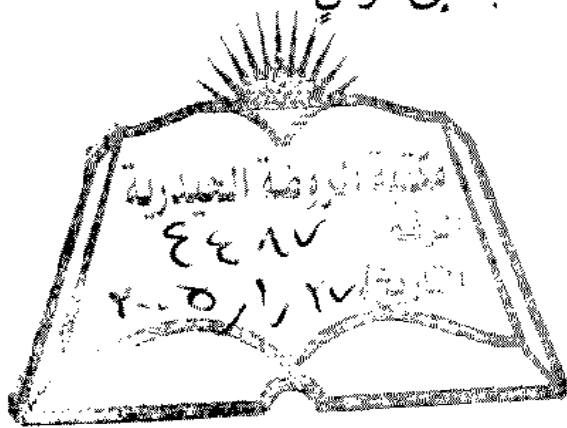 مكتبة الروضة الحيدرية
الرقم ٤٤٨٧
التاريخ ٢٠٠٥/١/٢٧